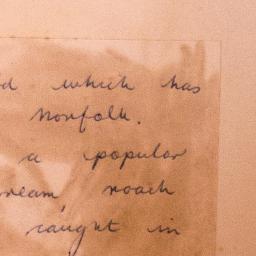 d which has
Norfolk.
a popular
ream, roach
caught in